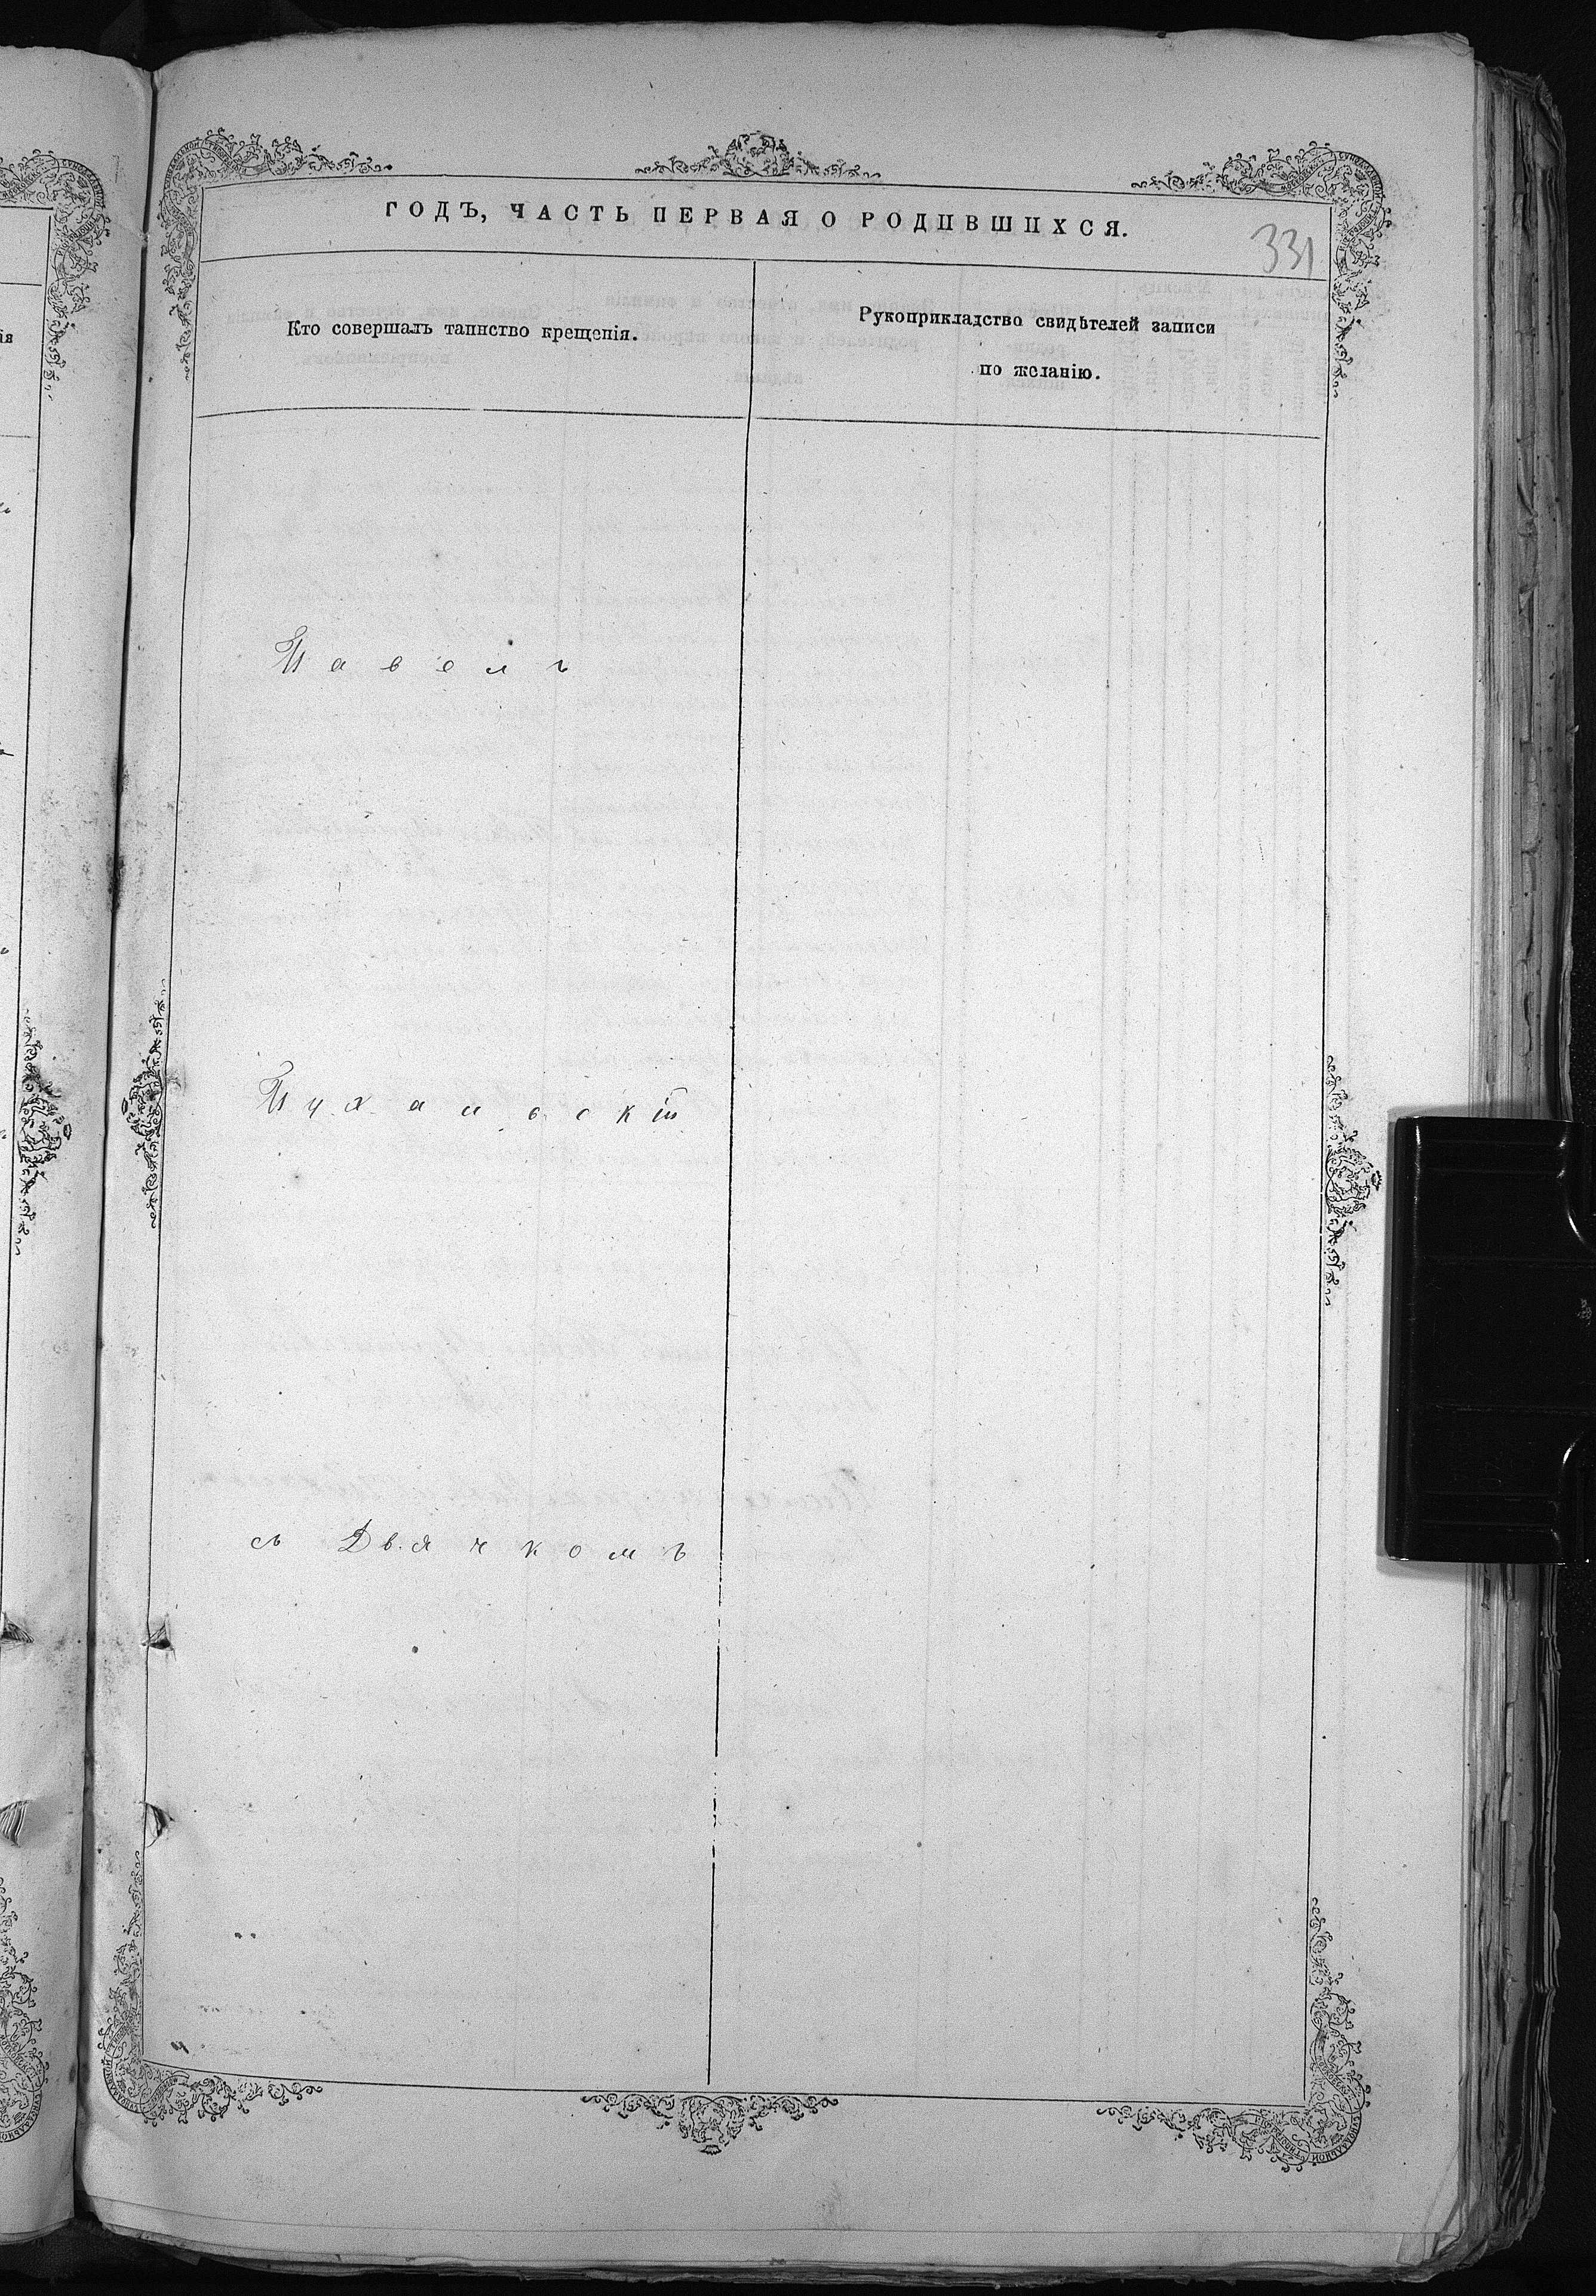 ГОДЪ, ЧАСТЬ ПЕРВАЯ О РОДИВШИХСЯ.
331
Кто совершалъ таинство крещенія.
Рукоприкладство свидѣтелей записи
по желанію.
Павелъ
Пухальскій
съ Дьячкомъ